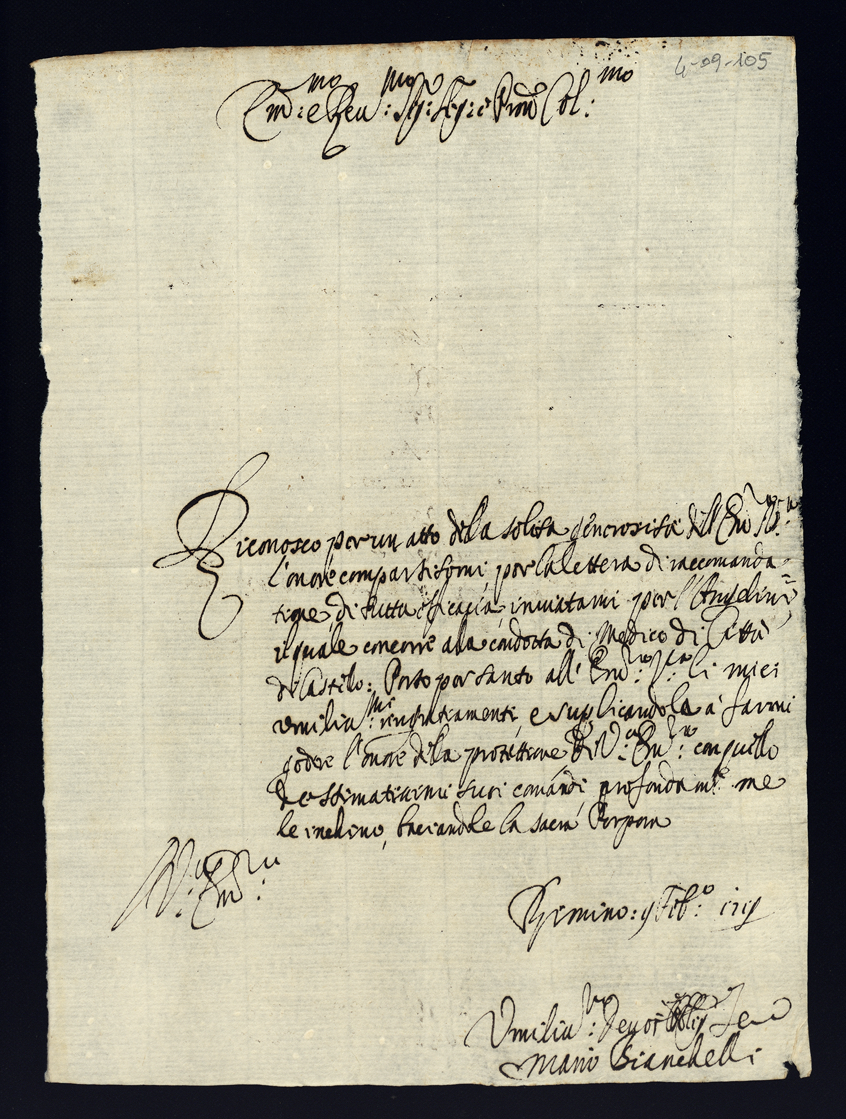 4-09-105
Em:mo e Reu:mo Sig: Sig: e Pron Col:mo
Riconosco per un atto della solita generosità dell'Em V:ra
l'onore compartitomi, per la lettera di raccomanda-
tione di tutta eficacia, inviatami per l'Anselmi,
il quale concorre alla condotta di Medico di Città
di Castello: Porto per tanto all' Em:za V:ra li miei
umiliss:mi ringratiamenti, e suplicandola à farmi
godere l'onore della protettione di V:ra Em:za con quello
de stimatissimi suoi comandi, profondam:te me
le inchino, baciandole la sacra Porpora
V:ra Em:za
Rimino: 9 Feb:o 1719
Umiliss:mo Deuot Ser
Mario Bianchelli